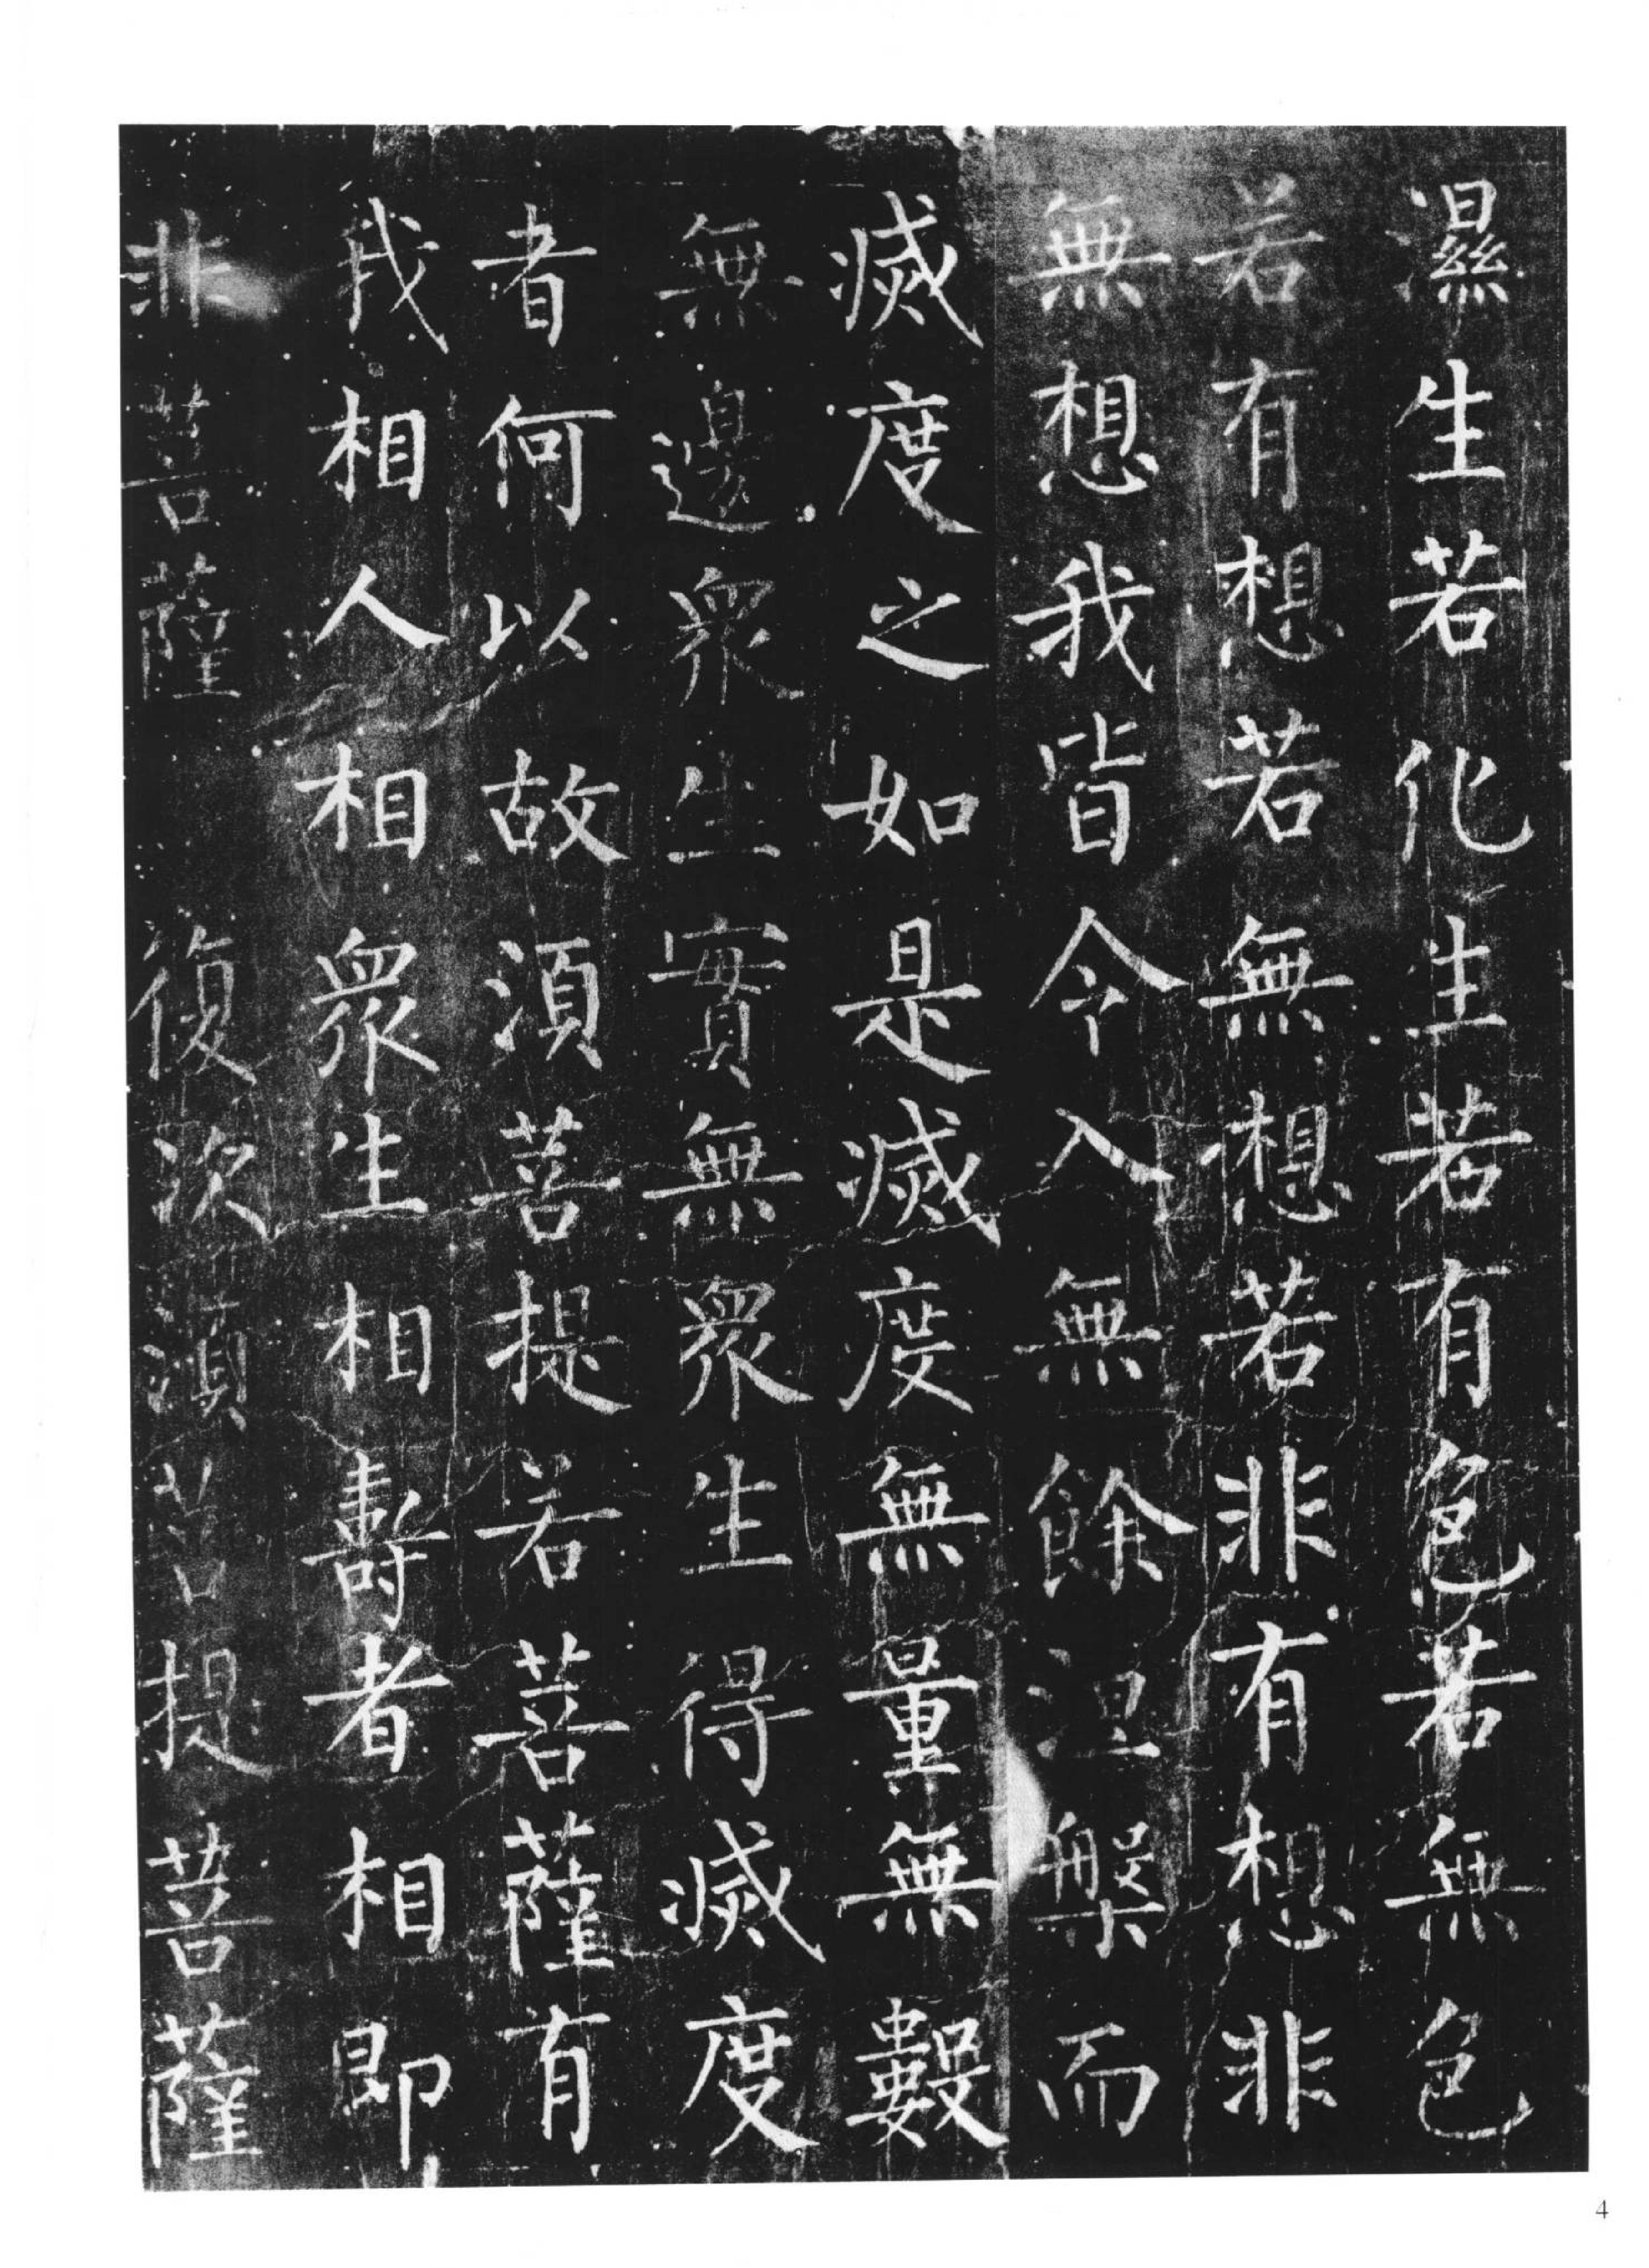 濕生若化生若有色若無色
若有想若無想若非有想非
無想我皆令入無餘涅槃而
滅度之如是滅度無量無數
無邊眾生實無眾生得滅度
者何以故須菩提若菩薩有
我相人相眾生相壽者相即
非菩薩 復次須菩提菩薩
4